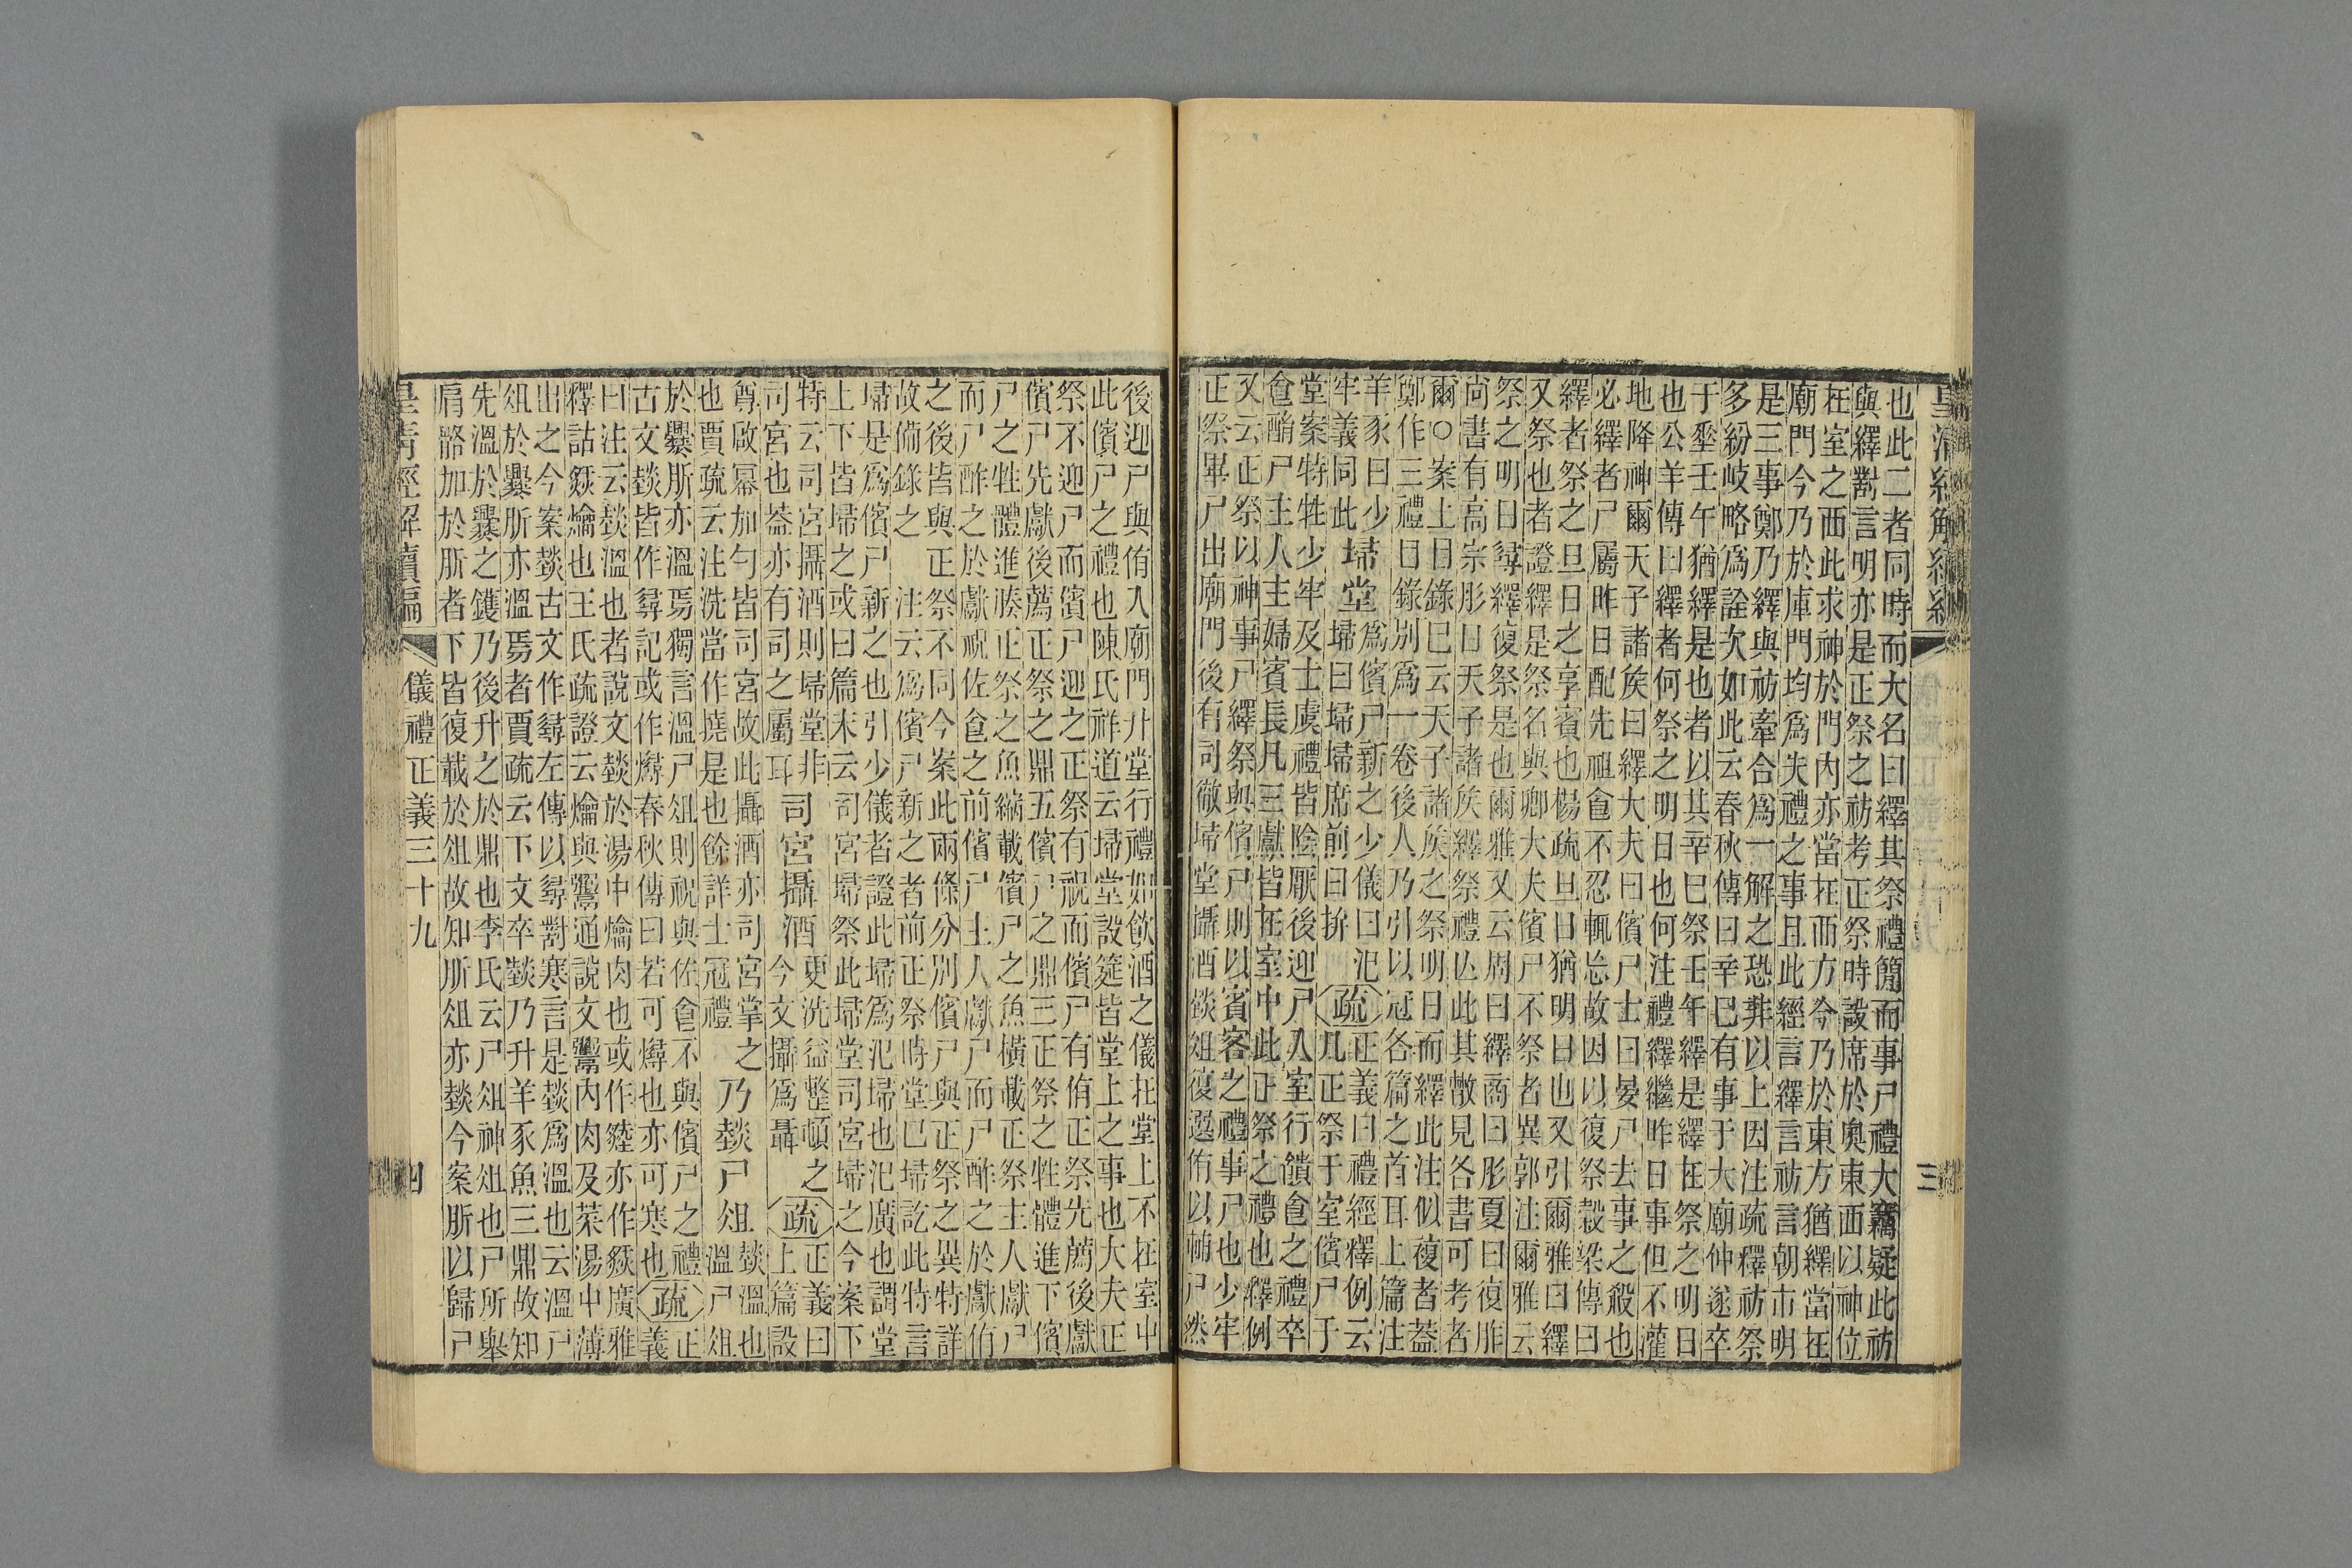 皇清經解續編
三
也此二者同時而大名曰繹其祭禮簡而事尸禮大竊疑此祊
與繹對言明亦是正祭之祊考正祭時設席於奧東面以神位
在室之西此求神於門內亦當在西方今乃於東方猶繹當在
廟門今乃於庫門均爲失禮之事且此經言繹言祊言朝市明
是三事鄭乃繹與祊牽合爲一解之恐非以上因注疏釋祊祭
多紛岐略爲詮次如此云春秋傳曰辛巳有事于大廟仲遂卒
于垂壬午猶繹是也者以其辛巳祭壬午繹是繹在祭之明日
也公羊傳曰繹者何祭之明日也何注禮繹繼昨日事但不灌
地降神爾天子諸矦曰繹大夫曰儐尸士曰宴尸去事之殺也
必繹者尸屬昨日配先祖食不忍輒忘故因以復祭穀梁傳曰
繹者祭之旦日之享賓也楊疏旦日猶明日也又引爾雅曰繹
又祭也者證繹是祭名與卿大夫儐尸不祭者異郭注爾雅云
祭之明日尋繹復祭是也爾雅又云周曰繹商曰肜夏曰復胙
尚書有高宗肜日天子諸矦繹祭禮亾此其散見各書可考者
爾○案上目錄已云天子諸矦之祭明日而繹此注似複者蓋
鄭作三禮目錄別爲一卷後人乃引以冠各篇之首耳上篇注
羊豕曰少牢義同此
埽堂
爲儐尸新之少儀曰汜
埽曰埽埽席前曰拚
疏
正義曰禮經釋例云
凡正祭于室儐尸于
堂案特牲少牢及士虞禮皆陰厭後迎尸入室行饋食之禮卒
食酳尸主人主婦賓長凡三獻皆在室中此正祭之禮也釋例
又云正祭以神事尸繹祭與儐尸則以賓客之禮事尸也少牢
正祭畢尸出廟門後有司徹埽堂攝酒燅俎復選侑以輔尸然
後迎尸與侑入廟門升堂行禮如飲酒之儀在堂上不在室中
此儐尸之禮也陳氏祥道云埽堂設筵皆堂上之事也大夫正
祭不迎尸而儐尸迎之正祭有祝而儐尸有侑正祭先薦後獻
儐尸先獻後薦正祭之鼎五儐尸之鼎三正祭之牲體進下儐
尸之牲體進腠正祭之魚縮載儐尸之魚橫載正祭主人獻尸
而尸酢之於獻祝佐食之前儐尸主人獻尸而尸酢之於獻侑
之後皆與正祭不同今案此兩條分別儐尸與正祭之異特詳
故備錄之
注云爲儐尸新之者前正祭時堂已埽訖此特言
埽是爲儐尸新之也引少儀者證此埽爲汜埽也汜廣也謂堂
上下皆埽之或曰篇末云司宮埽祭此埽堂司宮埽之今案下
特云司宮攝酒則埽堂非
司宮也蓋亦有司之屬耳
司宮攝酒
更洗益整頓之
今文攝爲聶
疏
正義曰
上篇設
尊啟冪加勺皆司宮故此攝酒亦司宮掌之
也賈疏云注洗當作撓是也餘詳士冠禮
乃燅尸俎
燅溫也
溫尸俎
於爨肵亦溫焉獨言溫尸俎則祝與佐食不與儐尸之禮
古文燅皆作尋記或作燖春秋傳曰若可燖也亦可寒也
疏
正
義
曰注云燅溫也者說文燅於湯中爚肉也或作𤎥亦作𤊽廣雅
釋詁𤊽爚也王氏疏證云爚與鬻通說文鬻內肉及菜湯中薄
出之今案燅古文作尋左傳以尋對寒言是燅爲溫也云溫尸
俎於爨肵亦溫焉者賈疏云下文卒燅乃升羊豕魚三鼎故知
先溫於爨之鑊乃後升之於鼎也李氏云尸俎神俎也尸所舉
肩骼加於肵者下皆復載於俎故知肵俎亦燅今案肵以歸尸
皇清經解續編
儀禮正義三十九
四